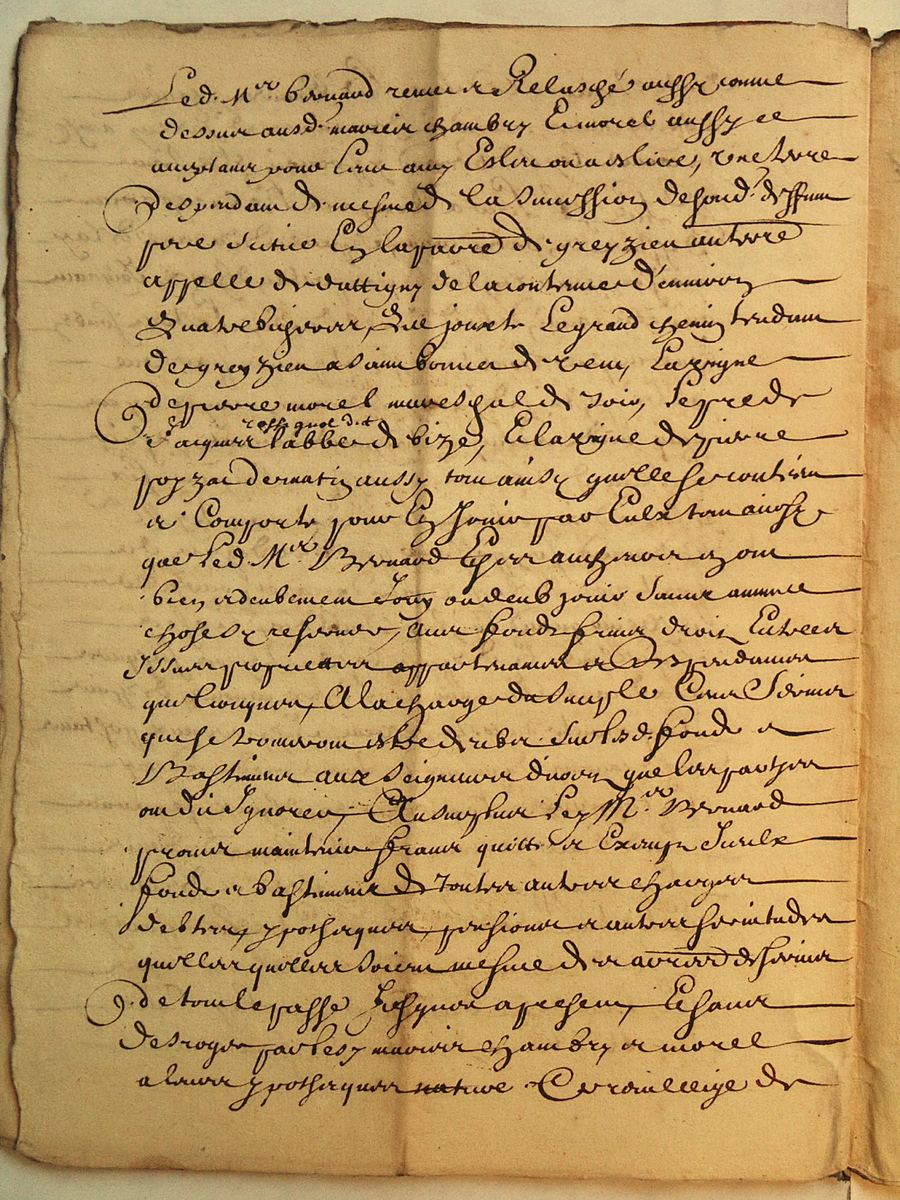 Led. Mre Bernard remet et Relasché aussy comme
dessus ausd. mariés chambry Et morel aussy ce
acceptans pour Eux aux Eslus ou a eslire, une terre
despendant de mesme de la succession de feud. deffunt
size En la paroisse de greyzieu
appellé de de la contenue d'environ
quatre bicherées, Qui jouxte Le grand chemin tendant
de greyzieu a de vent, La vigne
de pierre morel mareschal de soir, Le pré de
rossignol dit
Jacques labbé de bize, Et la vigne de pierre
aussy tout ainsy quelle se contient
et Comporte pour En Jouir par Eulx tout ainsy
que Led. Mre Bernard Et ses autheurs en ont
bien et deubement Jouy ou deub jouir sans aucune
chose y reserver, avec fonds fruits droits Entrées
Issues proprietés appartenances et Despendances
quelconques, A la charge du simple Cens Servis
qui se trouveront estre deubs sur lesd. fonds et
Bastiments aux Seigneurs d'iceux que les parties
ont dit Ignorer, Au surplus Ledt Mre Bernard
promet maintenir francs quitte et Exempts Iceulx
fonds et bastiments de Toutes autres charges
debtes, ypotheques, pensions et autres servitudes
quelles quelles soient mesme des arrerages de servis
de tout le passé Jusques a present, Et sans
desroger par lesd. mariés chambry et morel
a leurs ypotheques Et privilleige de